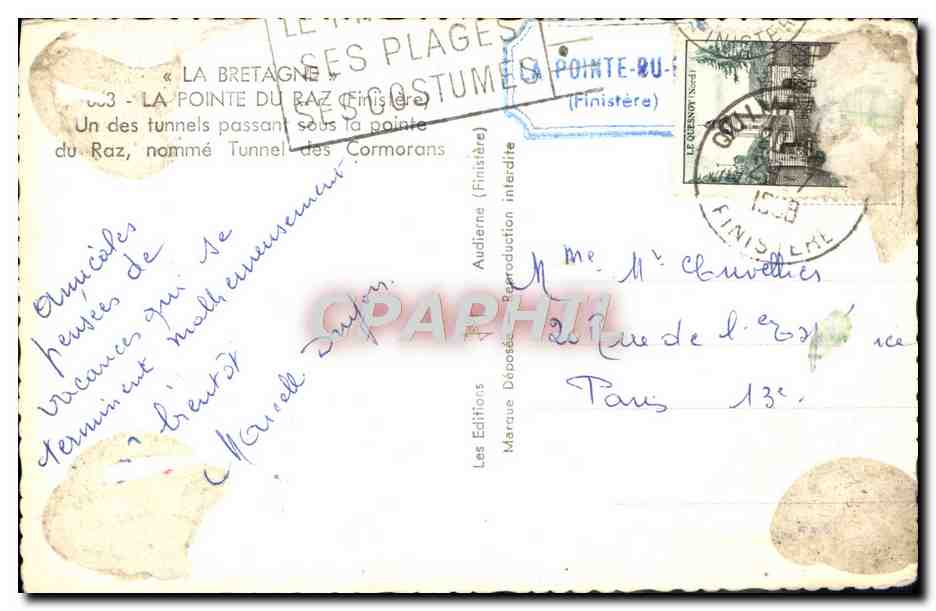 SES PLAGES
SES COSTUMES
« LA BRETAGNE »
LA POINTE DU RAZ (Finistère)
Un des tunnels passant sous la pointe
du Raz, nommé Tunnel des Cormorans
LA POINTE-DU-
(Finistère)
LE QUESNOY (Nord)
FINISTERE
amicales
pensées de
vacances qui se
terminent malheureusement.
bientôt
Les Editions Audierne (Finistère)
Marque Déposée Reproduction interdite
CPAPHIL
Mme Mr
20 Rue de l'
Paris 13e.